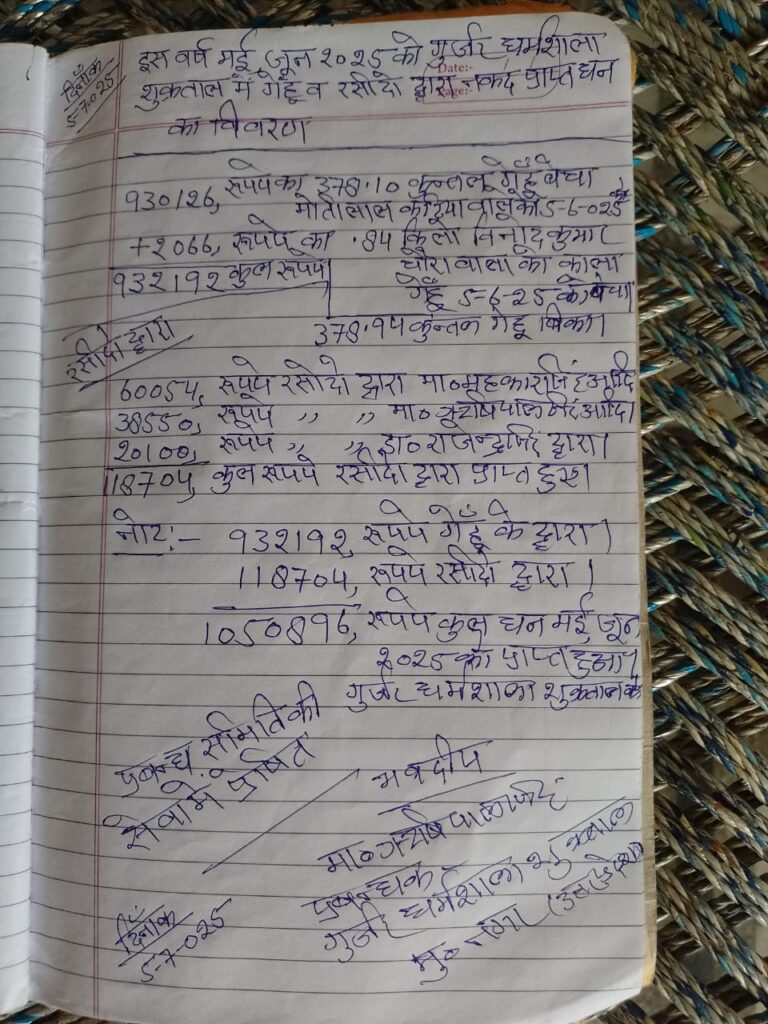 दिनाँक
5-7-025
इस वर्ष मई, जून २०२5 को गुर्जर धर्मशाला
Date:-
शुकताल में गेहूँ व रसीदो द्वारा नकद प्राप्त धन
Page:-
का विवरण
930126, रूपये का 378.10 कुन्तल गेहूँ बेचा
मोतीलाल वाले को 5-6-025 को
+2066, रूपये का .84 किलो विनोद कुमार
932192 कुल रूपये
चौरावाला को काला
गेहूँ 5-6-25 को बेचा
378.94 कुन्तल गेहूँ बिका।
रसीदो द्वारा
60054, रूपये रसीदो द्वारा मा० सिंह आदि
38550, रूपये ,, ,, मा० ऋषिपाल सिंह आदि।
20100, रूपये ,, ,, डा० राजेन्द्र सिंह द्वारा।
118704, कुल रूपये रसीदो द्वारा प्राप्त हुए।
नोट:- 932192, रूपये गेहूँ के द्वारा।
118704, रूपये रसीदो द्वारा।
1050896, रूपये कुल धन मई, जून
२०२5 को प्राप्त हुआ।
गुर्जर धर्मशाला शुकताल की
प्रबन्ध समिति की
सेवा में प्रेषित
भवदीय
मा० ऋषिपाल सिंह
प्रबन्धक
गुर्जर धर्मशाला शुकताल
मु० नगर (उत्तर प्रदेश)
दिनाँक
5-7-025